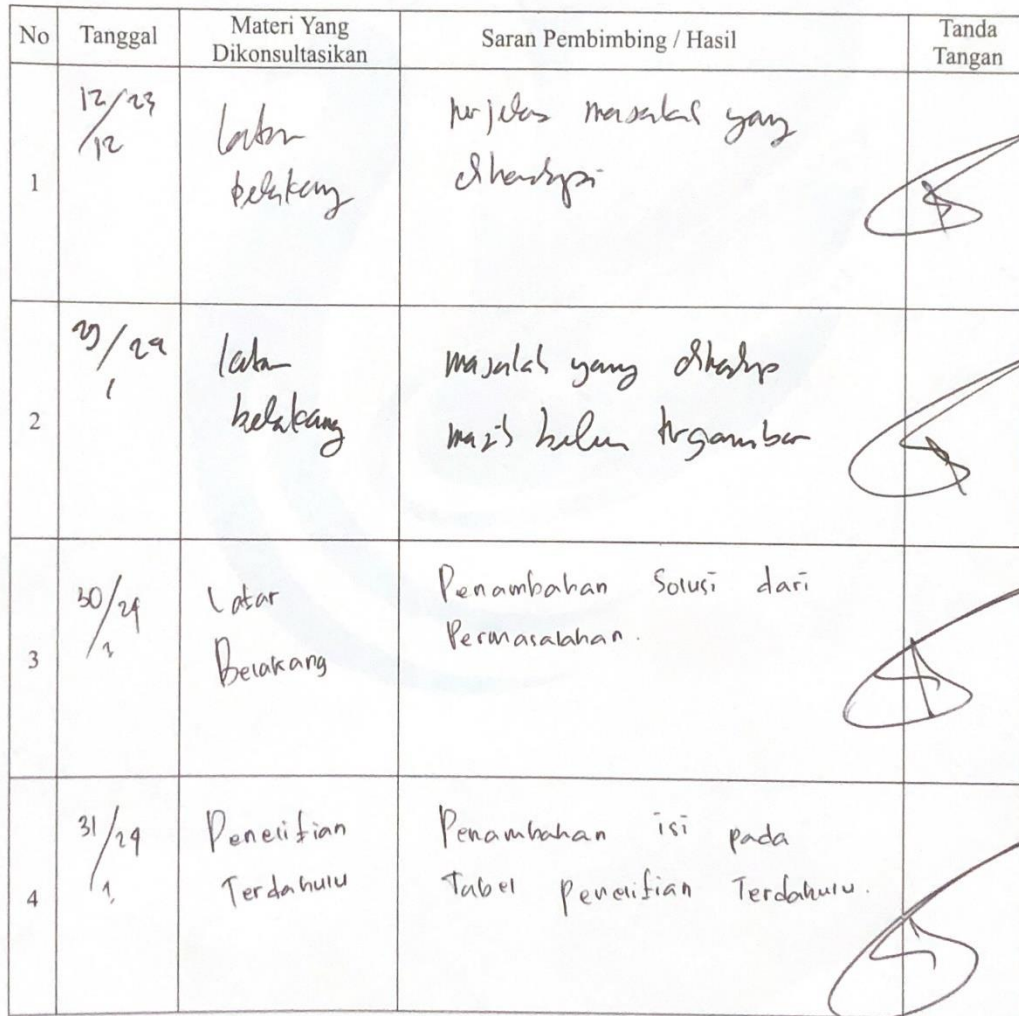 No Tanggal Materi Yang Dikonsultasikan Saran Pembimbing / Hasil Tanda Tangan
1
12/23
/12
latar
belakang
perjelas masalah yang
dihadapi
2
29/24
1
latar
belakang
masalah yang dihadap
masih belum tergambar
3
30/24
/1
Latar
Belakang
Penambahan Solusi dari
Permasalahan.
4
31/24
/1
Penelitian
Terdahulu
Penambahan isi pada
Tabel Penelitian Terdahulu.